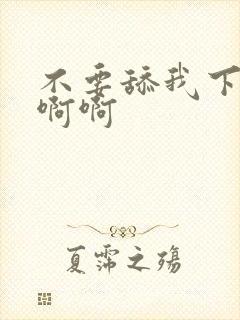 不要舔我下
啊啊
夏霈之殇